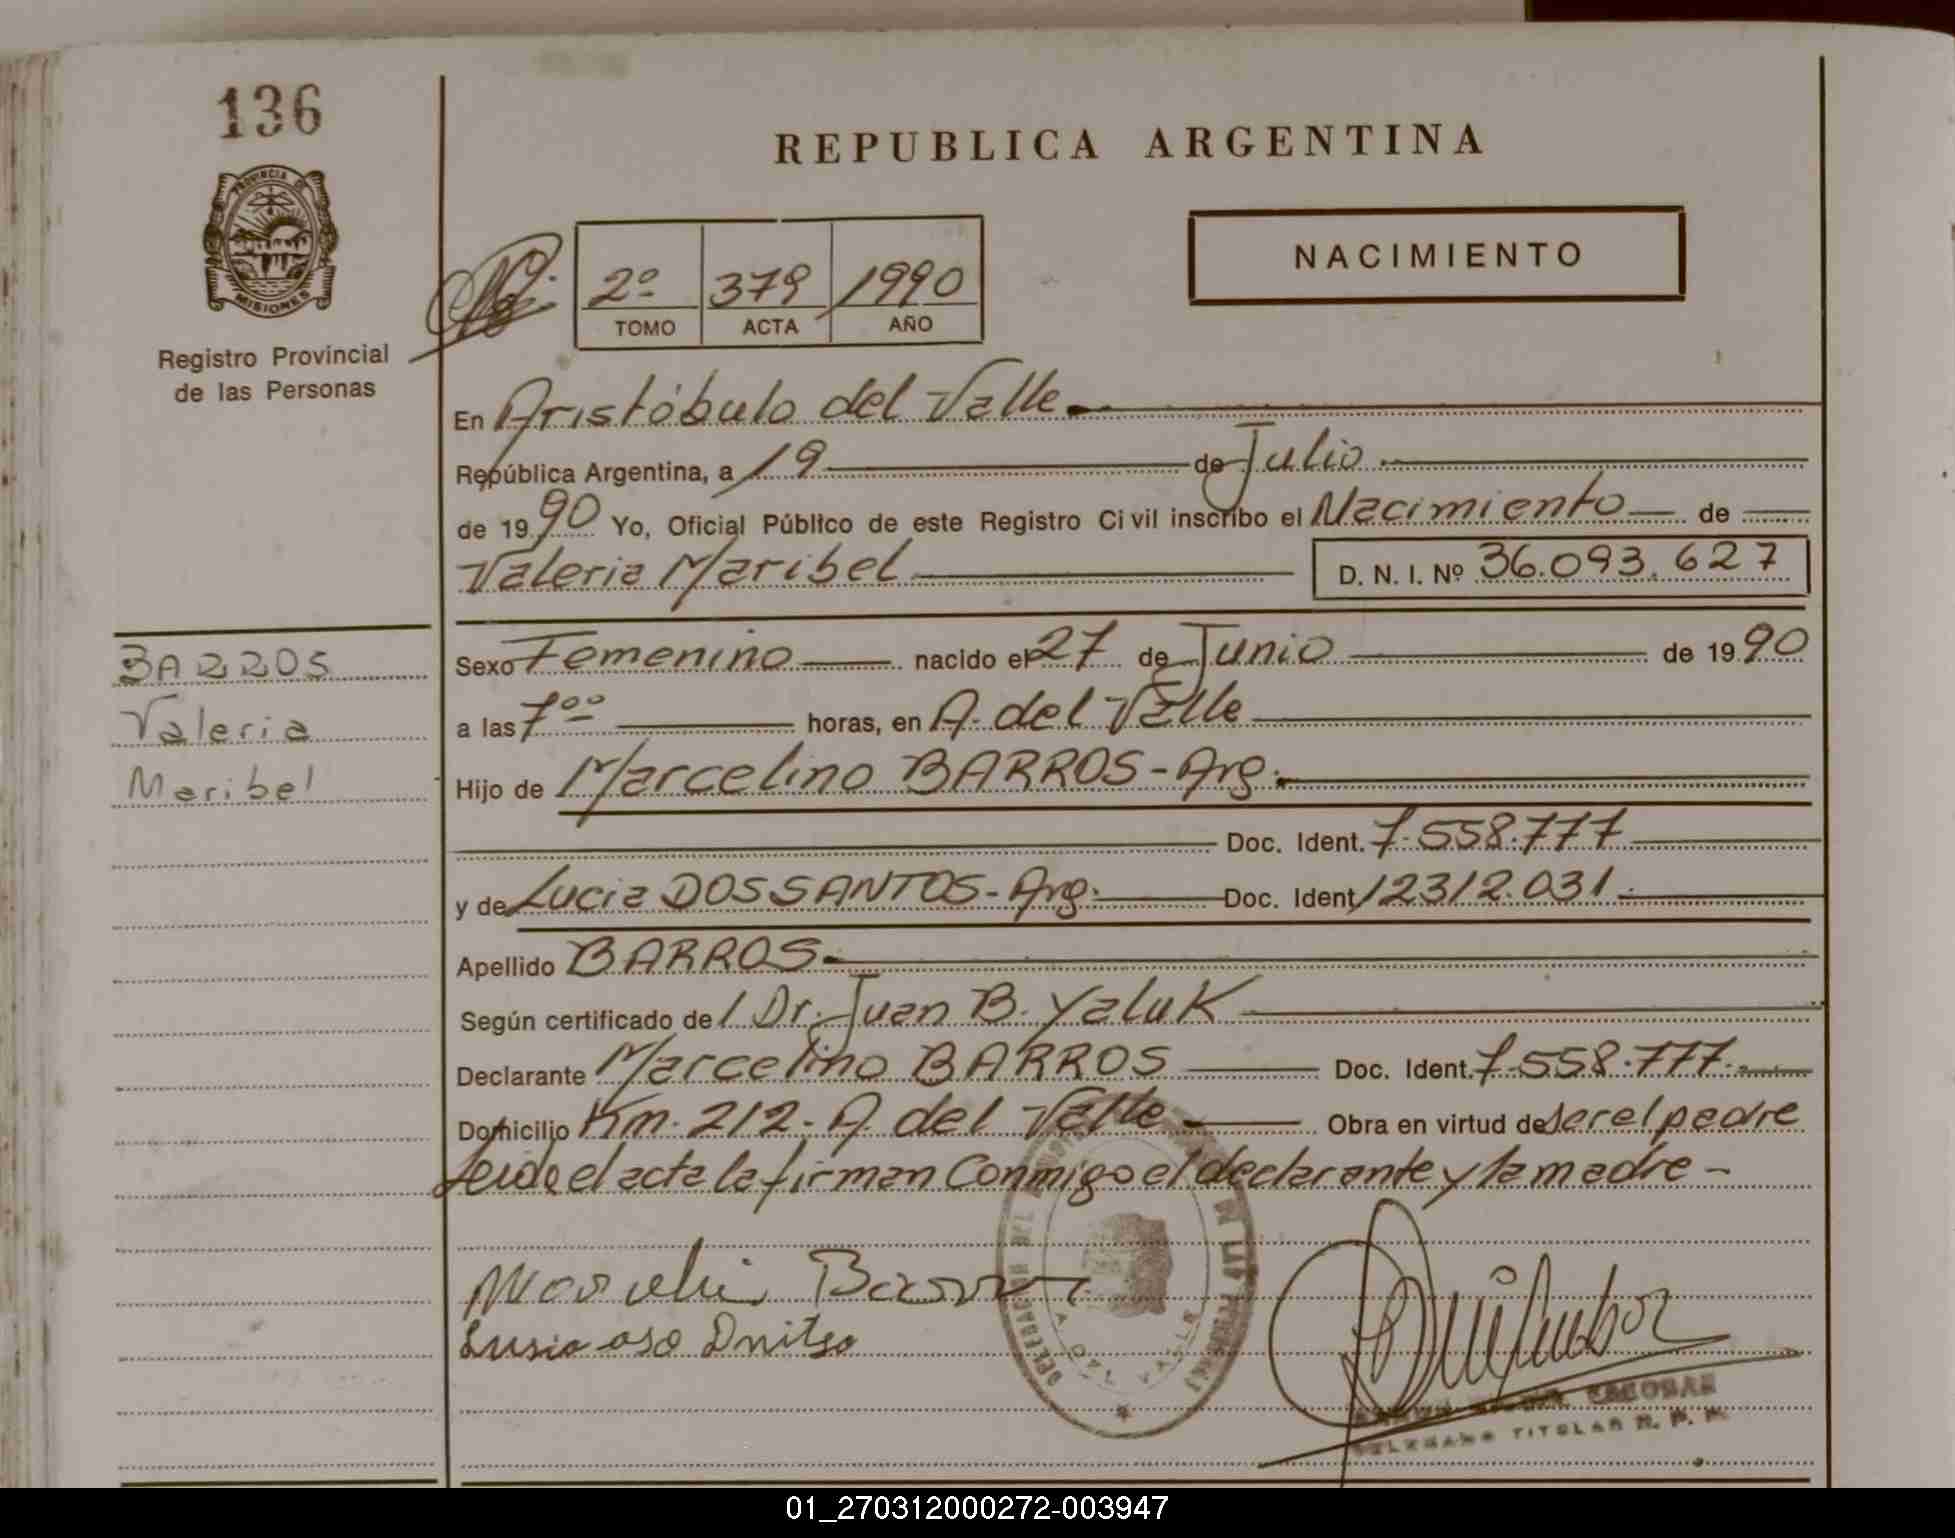 136
PROVINCIA DE
MISIONES
Registro Provincial
de las Personas
REPUBLICA ARGENTINA
2º 379 1990
TOMO ACTA AÑO
NACIMIENTO
En Aristóbulo del Valle
República Argentina, a 19 de Julio
de 1990 Yo, Oficial Público de este Registro Civil inscribo el Nacimiento de
Valeria Maribel D. N. I. Nº 36.093.627
BARROS
Valeria
Maribel
Sexo Femenino nacido el 27 de Junio de 1990
a las 7ºº horas, en A. del Valle
Hijo de Marcelino BARROS - Arg.
Doc. Ident. 7.558.777
y de Lucia DOSSANTOS - Arg. Doc. Ident 12312.031
Apellido BARROS
Según certificado de l Dr. Juan B. Yaluk
Declarante Marcelino BARROS Doc. Ident. 7.558.777
Domicilio Km. 212 - A. del Valle Obra en virtud de ser el padre
Leida el acta la firman Conmigo el declarante y la madre -
A. DEL VALLE
ESCOBAR
TITULAR R. P. P.
01_270312000272-003947